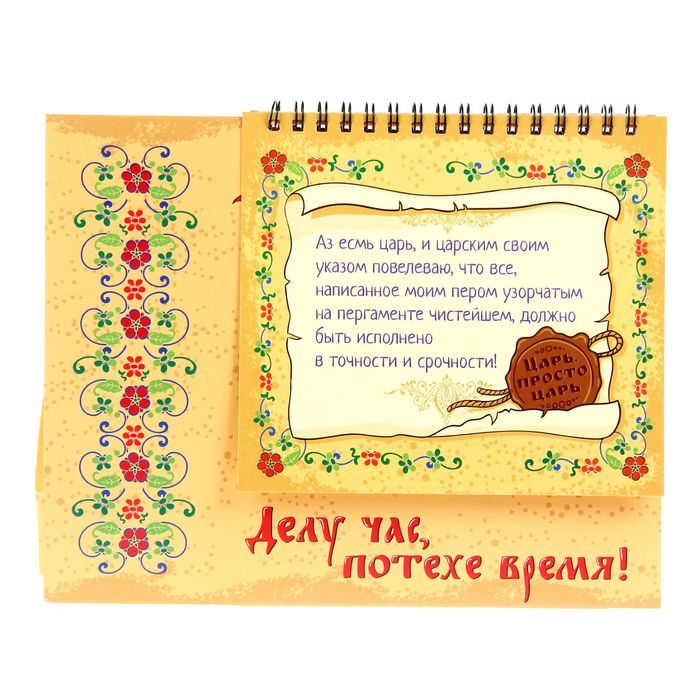 Аз есмь царь, и царским своим
указом повелеваю, что все,
написанное моим пером узорчатым
на пергаменте чистейшем, должно
быть исполнено
в точности и срочности!
Царь,
просто
царь
Делу час,
потехе время!